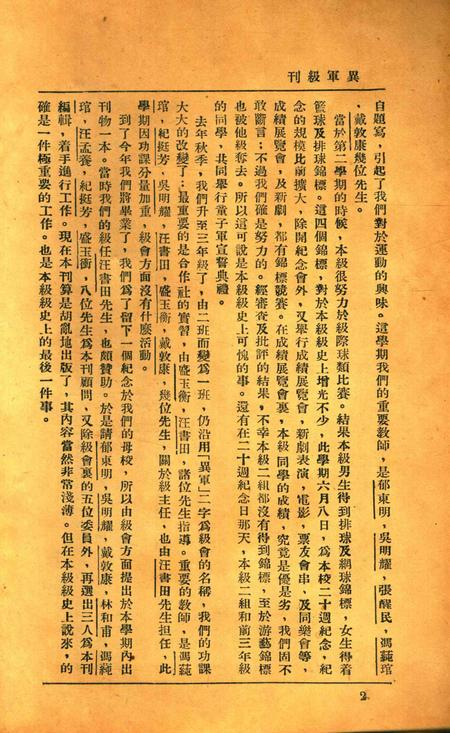 異軍級刊
自題寫，引起了我們對於運動的興味。這學期我們的重要教師，是郁東明，吳明耀，張醒民，馮蒓琯
，戴敦康幾位先生。
當於第二學期的時候，本級很努力於級際球類比賽。結果本級男生得到排球及網球錦標，女生得着
籃球及排球錦標。這四個錦標，對於本級級史上增光不少，此學期六月八日，爲本校二十週紀念，紀
念的規模比前擴大，除開紀念會外，又舉行成績展覽會，新劇表演，電影，票友會串，及同樂會等，
成績展覽會，及新劇，都有錦標競賽。在成績展覽會裏，本級同學的成績，究竟是優是劣，我們固不
敢斷言；不過我們確是努力的。經審查及批評的結果，不幸本級二組都沒有得到錦標，至於游藝錦標
也被他級奪去。所以這可說是本級級史上可愧的事。還有在二十週紀念日那天，本級二組和前三年級
的同學，共同舉行童子軍宣誓典禮。
去年秋季，我們升至三年級了，由二班而變爲一班，仍沿用「異軍」二字爲級會的名稱，我們的功課
大大的改變了；最重要的是合作社的實習，由盛玉衡，汪書田，諸位先生指導。重要的教師，是馮蒓
琯，紀挺芳，吳明耀，汪書田，盛玉衡，戴敦康，幾位先生，關於級主任，也由汪書田先生担任，此
學期因功課分量加重，級會方面沒有什麼活動。
到了今年我們將畢業了，我們爲了留下一個紀念於我們的母校，所以由級會方面提出於本學期內出
刊物一本。當時我們的級任汪書田先生，也頗贊助。於是請郁東明，吳明耀，戴敦康，林和甫，馮蒓
琯，汪孟養，紀挺芳，盛玉衡，八位先生爲本刊顧問，又除級會裏的五位委員外，再選出三人爲本刊
編輯，着手進行工作。現在本刊算是胡亂地出版了，其內容當然非常淺薄。但在本級級史上說來，的
確是一件極重要的工作。也是本級級史上的最後一件事。
2